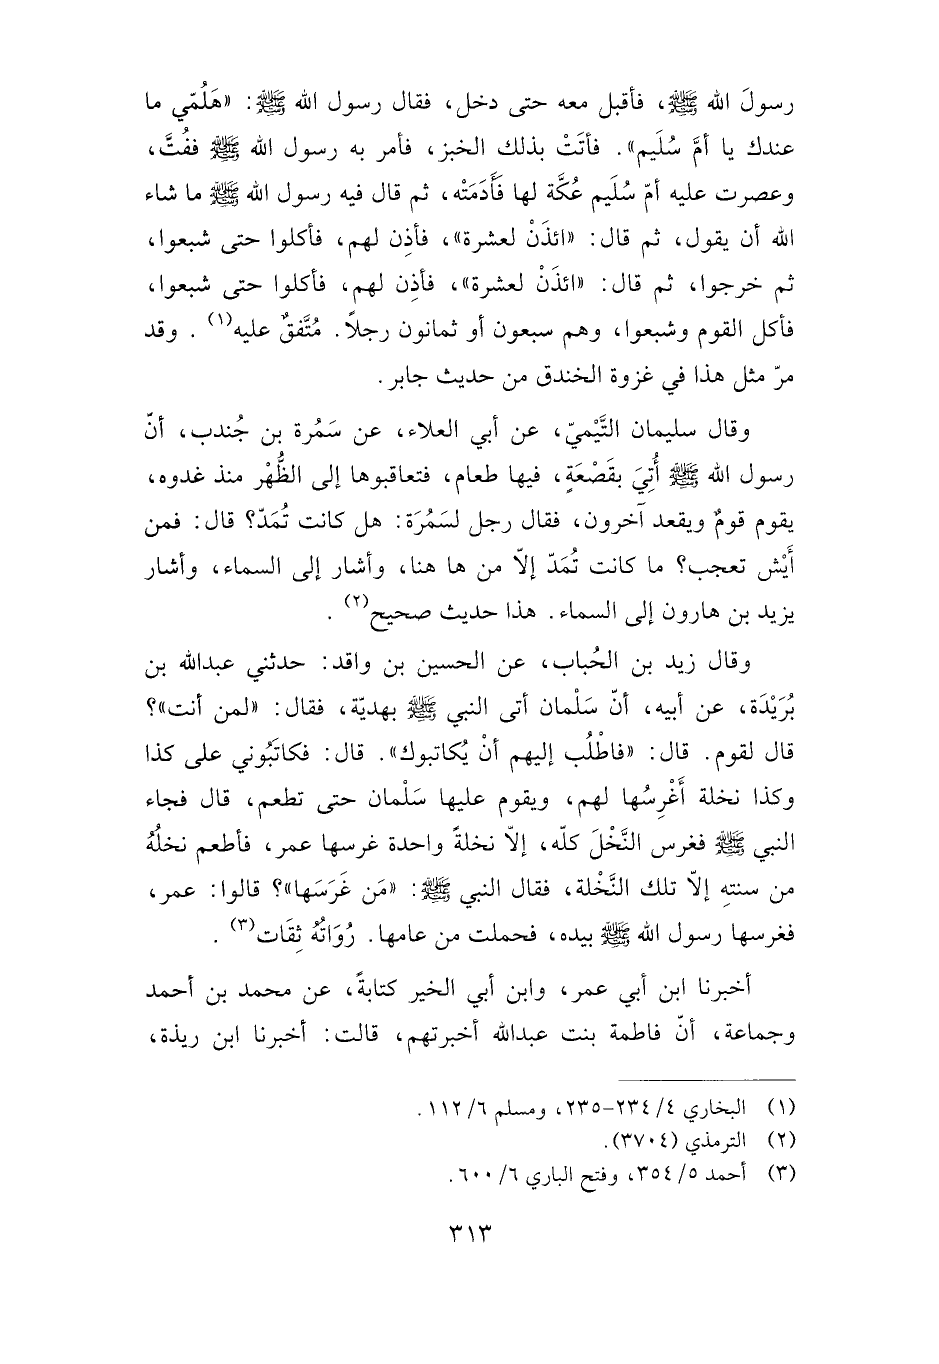 رسولَ الله ﷺ، فأقبل معه حتى دخل، فقال رسول الله ﷺ: «هَلُمّي ما
عندك يا أمَّ سُلَيم». فأتَتْ بذلك الخبز، فأمر به رسول الله ﷺ ففُتَّ،
وعصرت عليه أمّ سُلَيم عُكَّة لها فَأَدَمَتْه، ثم قال فيه رسول الله ﷺ ما شاء
الله أن يقول، ثم قال: «ائذَنْ لعشرة»، فأذِن لهم، فأكلوا حتى شبعوا،
ثم خرجوا، ثم قال: «ائذَنْ لعشرة»، فأذِن لهم، فأكلوا حتى شبعوا،
فأكل القوم وشبعوا، وهم سبعون أو ثمانون رجلاً. مُتَّفقٌ عليه(١) . وقد
مرّ مثل هذا في غزوة الخندق من حديث جابر.
وقال سليمان التَّيْميّ، عن أبي العلاء، عن سَمُرة بن جُندب، أنّ
رسول الله ﷺ أُتِيَ بقَصْعَةٍ، فيها طعام، فتعاقبوها إلى الظُّهْر منذ غدوه،
يقوم قومٌ ويقعد آخرون، فقال رجل لسَمُرَة: هل كانت تُمَدّ؟ قال: فمن
أَيْش تعجب؟ ما كانت تُمَدّ إلاّ من ها هنا، وأشار إلى السماء، وأشار
يزيد بن هارون إلى السماء. هذا حديث صحيح(٢) .
وقال زيد بن الحُباب، عن الحسين بن واقد: حدثني عبدالله بن
بُرَيْدَة، عن أبيه، أنّ سَلْمان أتى النبي ﷺ بهديّة، فقال: «لمن أنت»؟
قال لقوم. قال: «فاطْلُب إليهم أنْ يُكاتبوك». قال: فكاتَبُوني على كذا
وكذا نخلة أَغْرِسُها لهم، ويقوم عليها سَلْمان حتى تطعم، قال فجاء
النبي ﷺ فغرس النَّخْلَ كلّه، إلاّ نخلةً واحدة غرسها عمر، فأطعم نخلُهُ
من سنتهِ إلاّ تلك النَّخْلة، فقال النبي ﷺ: «مَن غَرَسَها»؟ قالوا: عمر،
فغرسها رسول الله ﷺ بيده، فحملت من عامها. رُوَاتُهُ ثِقَات(٣) .
أخبرنا ابن أبي عمر، وابن أبي الخير كتابةً، عن محمد بن أحمد
وجماعة، أنّ فاطمة بنت عبدالله أخبرتهم، قالت: أخبرنا ابن ريذة،
(١) البخاري ٤/ ٢٣٤-٢٣٥، ومسلم ٦/ ١١٢.
(٢) الترمذي (٣٧٠٤).
(٣) أحمد ٥/ ٣٥٤، وفتح الباري ٦/ ٦٠٠.
٣١٣